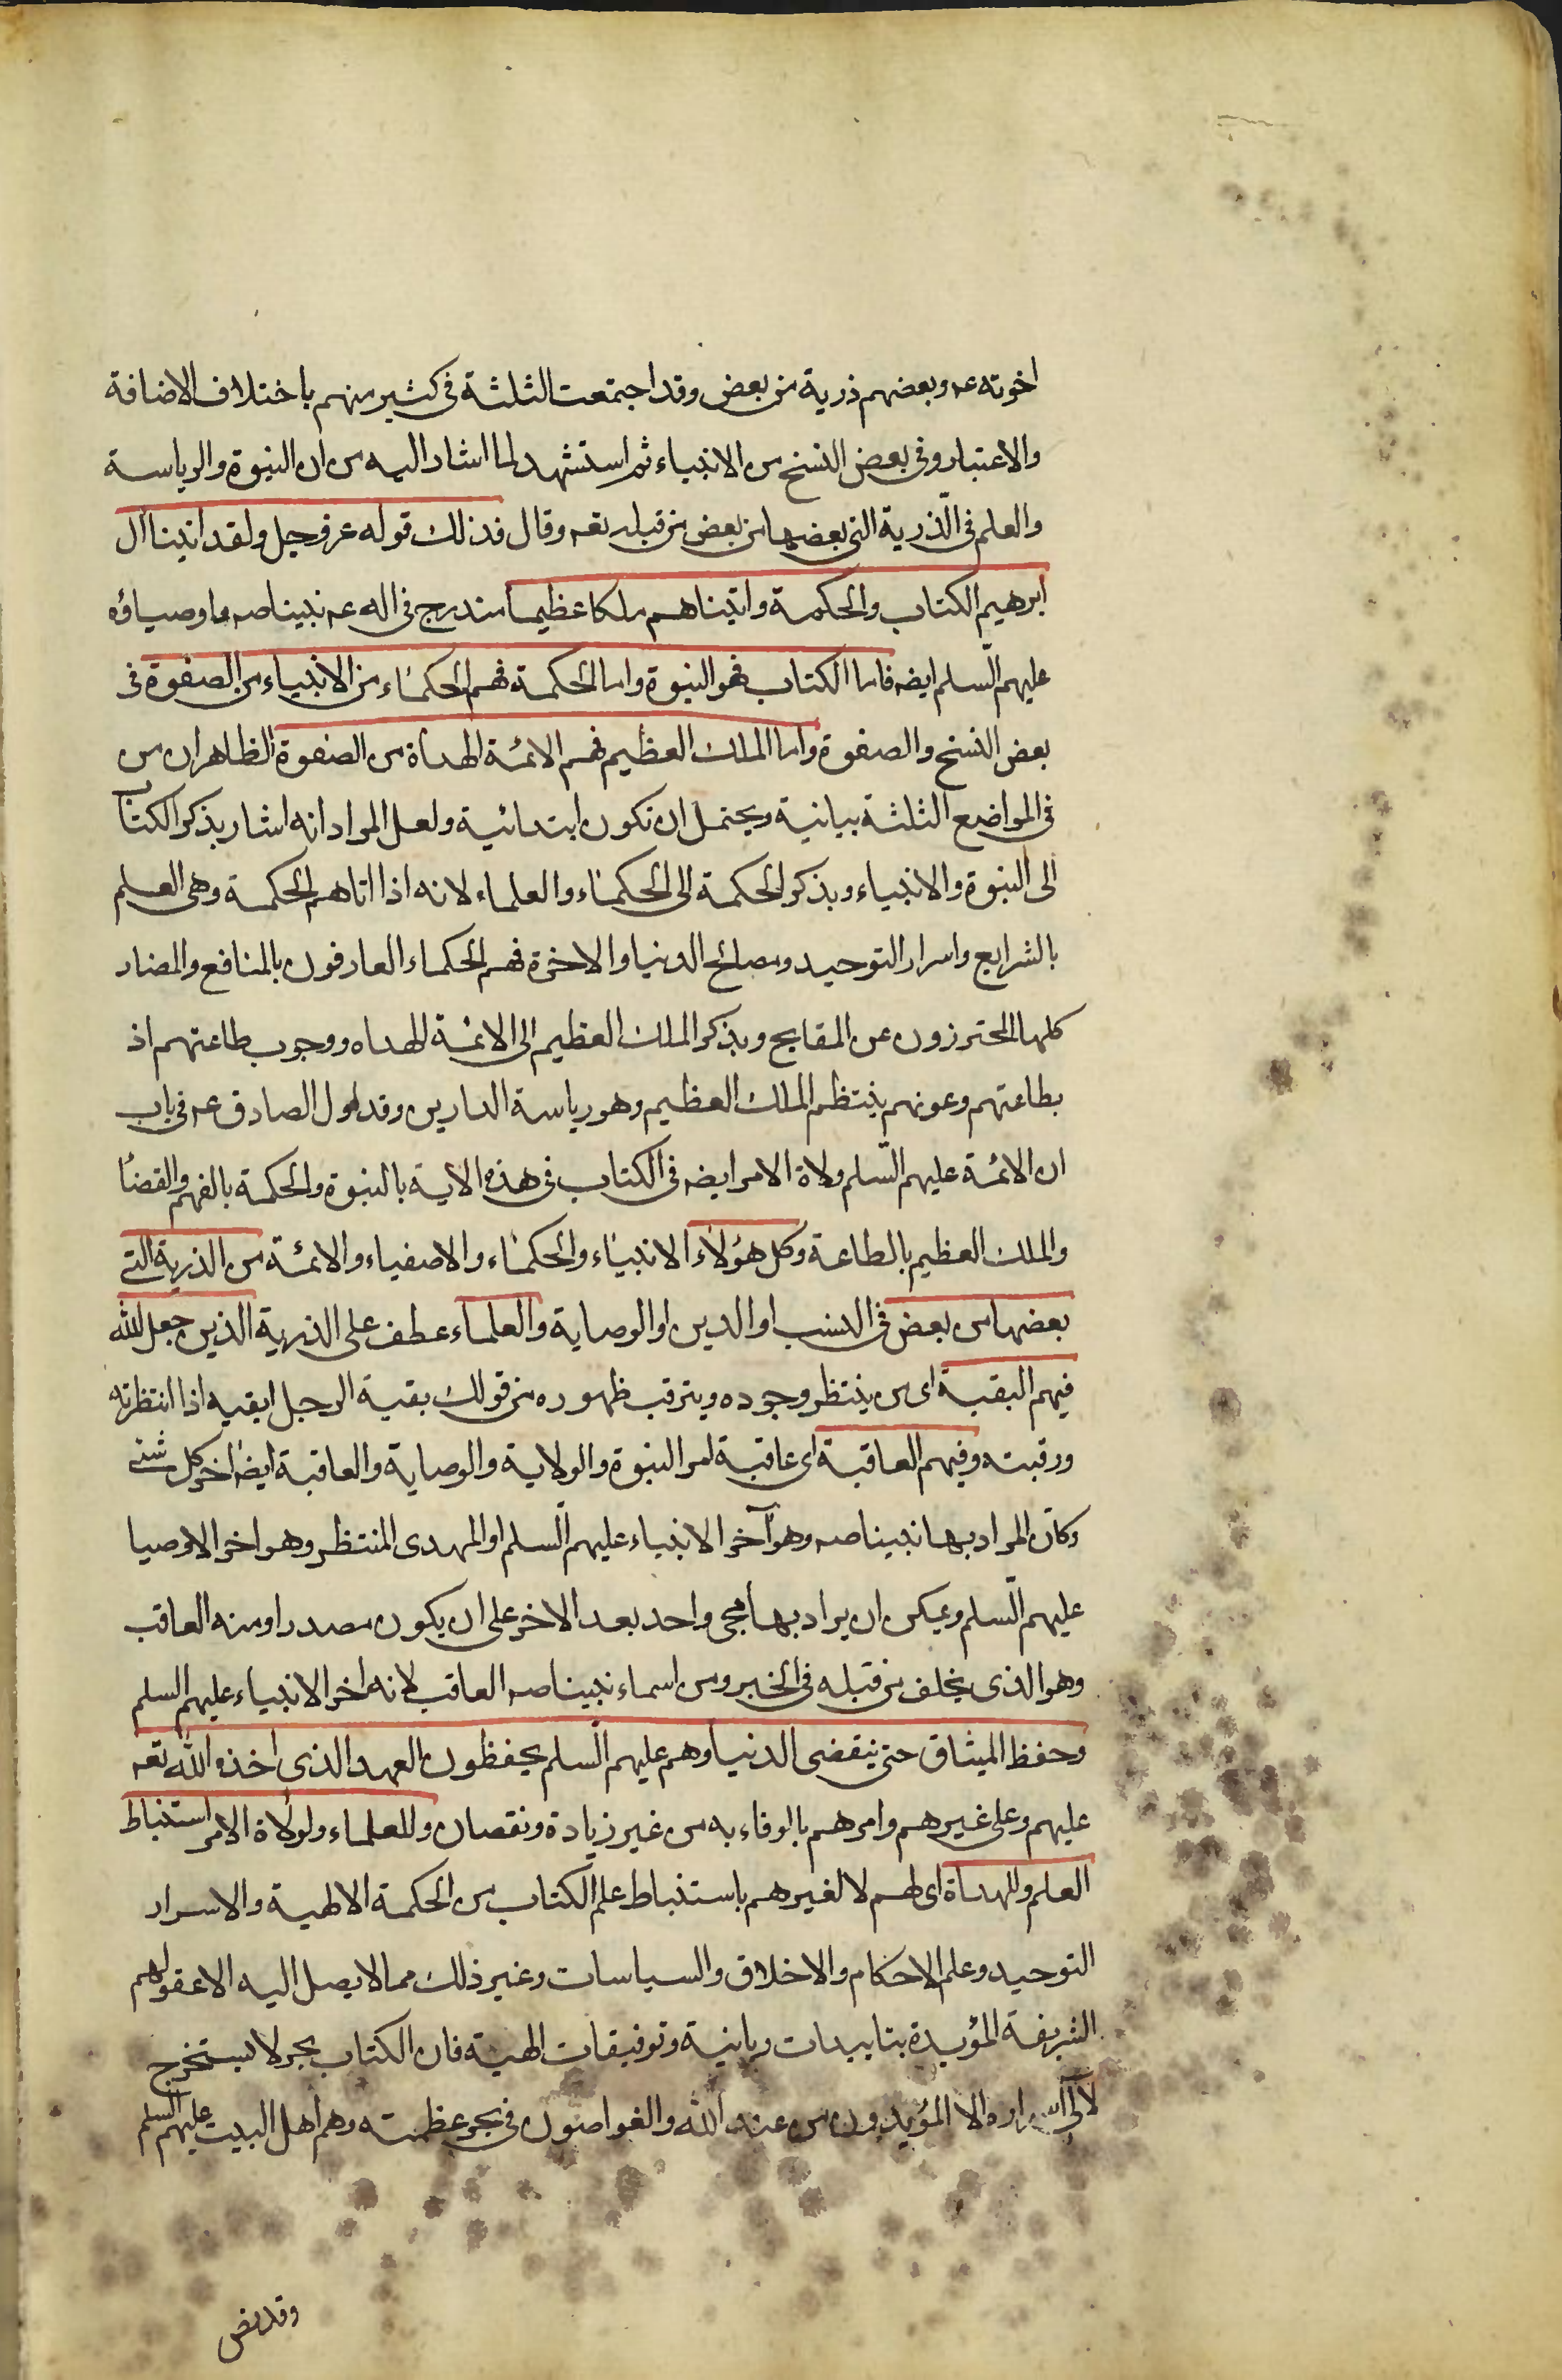 اخوته عه وبعضهم ذرية من بعض وقد اجتمعت الثلثة فى كثير منهم باختلاف الاضافة
والاعتبار وفى بعض النسخ من الانبياء ثم استشهد لما اشار اليه من ان النبوة والرياسة
والعلم فى الذّرية التى بعضها من بعض من قبله تعه وقال فذلك قوله عز وجل ولقد اتينا ال
ابرهيم الكتاب والحكمة واتيناهم ملكا عظيما مندرج فى اله عه نبينا صه واوصياؤه
عليهم السّلم ايضه فاما الكتاب فهو النبوة واما الحكمة فهم الحكماء من الانبياء من الصفوة فى
بعض النسخ والصفوة واما الملك العظيم فهم الائمة الهداة من الصفوة الظاهران من
فى المواضع الثلثة بيانية ويحتمل ان تكون ابتدائية ولعل المراد انه اشار بذكر الكتاب
الى النبوة والانبياء وبذكر الحكمة الى الحكماء والعلماء لانه اذا اتاهم الحكمة وهى العلم
بالشرايع واسرار التوحيد ومصالح الدنيا والاخرة فهم الحكماء العارفون بالمنافع والمضار
كلها المحترزون عن المقابح وبذكر الملك العظيم الى الائمة الهداه ووجوب طاعتهم اذ
بطاعتهم وعونهم ينتظم الملك العظيم وهو رياسة الدارين وقد اول الصادق عه فى باب
ان الائمة عليهم السّلم ولاة الامر ايضه فى الكتاب فى هذه الاية بالنبوة والحكمة بالفهم والقضا
والملك العظيم بالطاعة وكل هؤلاء الانبياء والحكماء والاصفياء والائمة من الذرية التى
بعضها من بعض فى النسب او الدين او الوصاية والعلماء عطف على الذرية الذين جعل الله
فيهم البقية اى من ينتظر وجوده ويترقب ظهوره من قولك بقية الرجل ابقيه اذا انتظرته
ورقبته وفيهم العاقبة اى عاقبة امر النبوة والولاية والوصاية والعاقبة ايضا اخر كل شئ
وكان المراد بها نبينا صه وهو آخر الانبياء عليهم السّلم او المهدى المنتظر وهو اخر الاوصيا
عليهم السّلم ويمكن ان يراد بها مجى واحد بعد الاخر على ان يكون مصدرا ومنه العاقب
وهو الذى يخلف من قبله فى الخبر ومن اسماء نبينا صه العاقب لانه اخر الانبياء عليهم السلم
وحفظ الميثاق حتى ينقضى الدنيا وهم عليهم السّلم يحفظون العهد الذى اخذه الله تعه
عليهم وعلى غيرهم وامرهم بالوفاء به من غير زيادة ونقصان وللعلماء ولولاة الامر استنباط
العلم وللهداة اى لهم لا لغيرهم باستنباط علم الكتاب من الحكمة الالهية والاسرار
التوحيد وعلم الاحكام والاخلاق والسياسات وغير ذلك مما لا يصل اليه الا عقولهم
الشريفة المؤيدة بتاييدات ربانية وتوفيقات الهية فان الكتاب بحر لا يستخرج
لآلى اسراره الا المؤيدون من عند الله والغواصون فى بحر عظمته وهم اهل البيت عليهم السلم